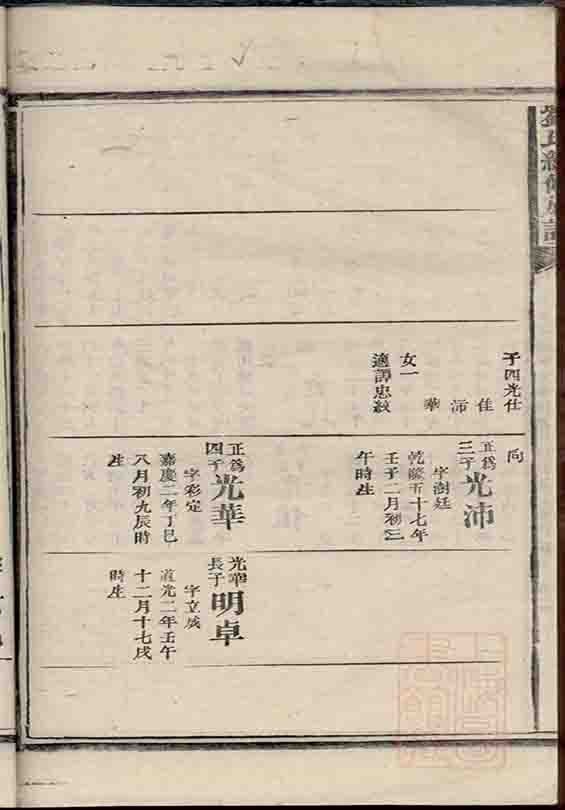 子四光仕
佳
沛
華
女一
適譚忠紋
同
正爲
三子
光沛
字澍廷
乾隆五十七年
壬子二月初三
午時生
正爲
四子
光華
字彩定
嘉慶二年丁巳
八月初九辰時
生
光華
長子
明卓
字立成
道光二年壬午
十二月十七戌
時生